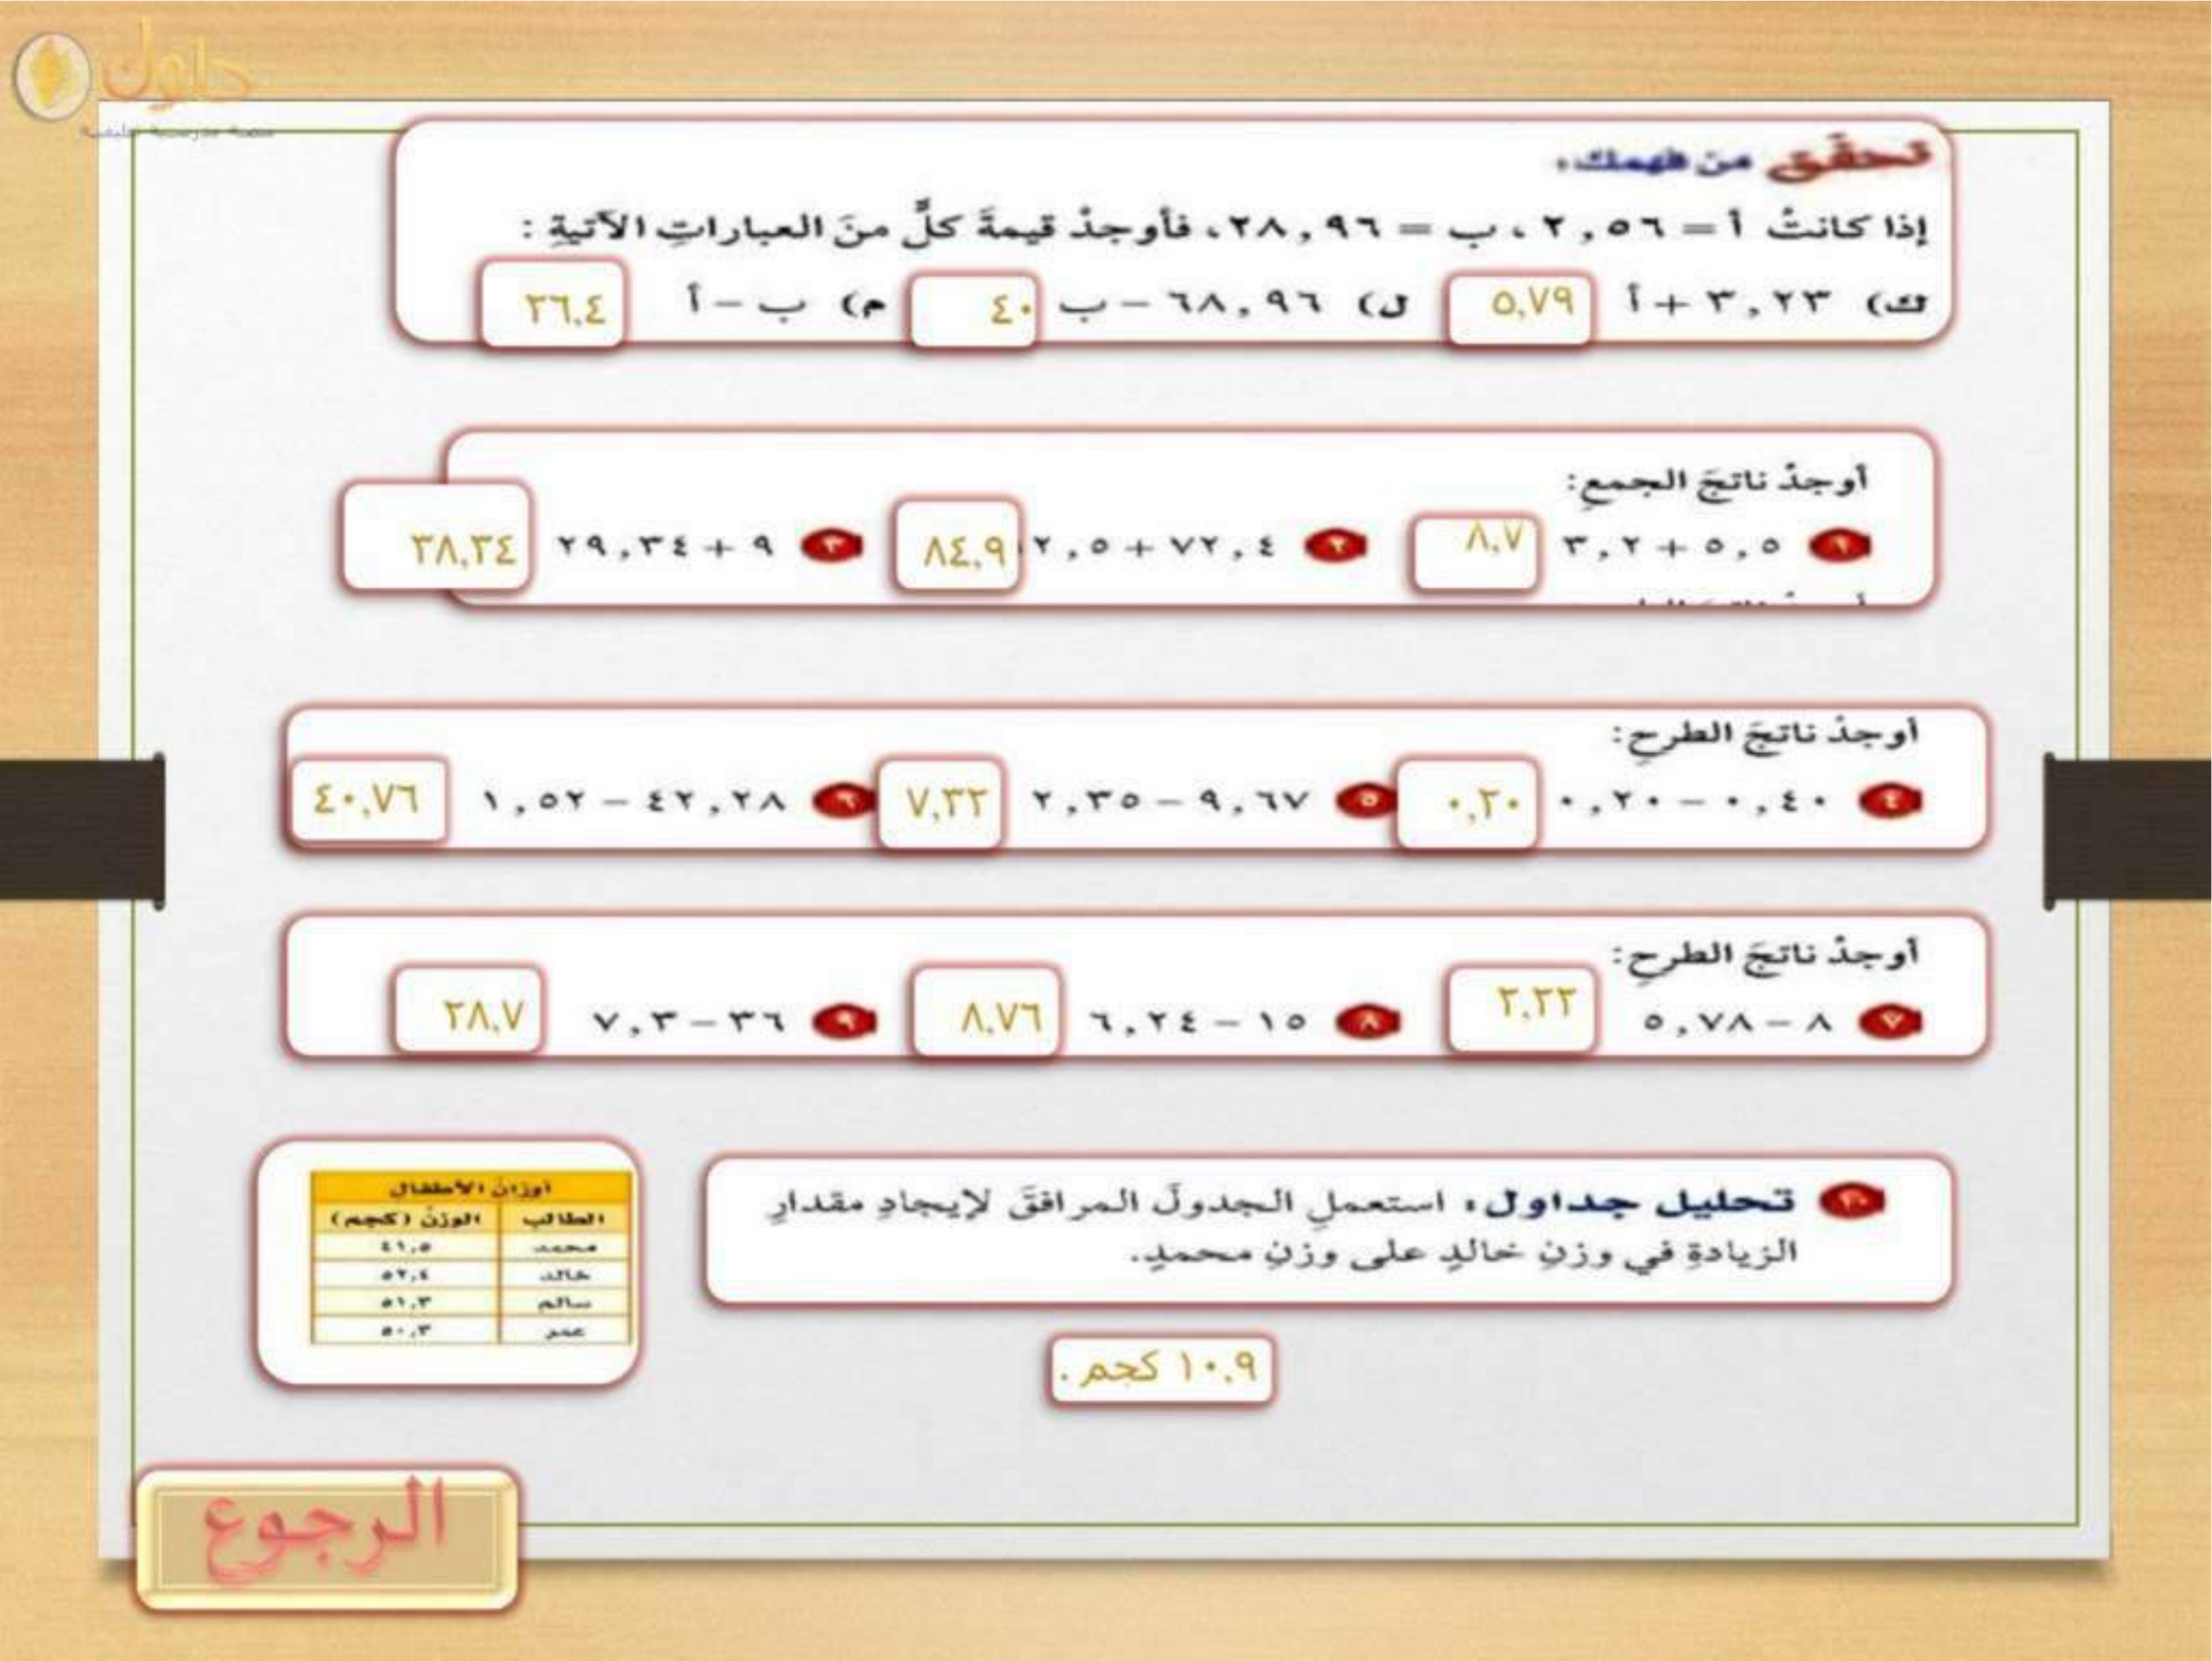 حلول
تحقق من فهمك:
إذا كانتْ أ = ٢,٥٦ ، ب = ٢٨,٩٦، فأوجدْ قيمةَ كلٍّ منَ العباراتِ الآتيةِ :
ك) ٣,٢٣ + أ ٥,٧٩ ل) ٦٨,٩٦ – ب ٤٠ م) ب – أ ٢٦.٤
أوجدْ ناتجَ الجمعِ:
١ ٥,٥ + ٣,٢ ٨.٧ ٢ ٧٢,٤ + ٢,٥ ٨٤.٩ ٣ ٩ + ٢٩,٣٤ ٣٨,٣٤
أوجدْ ناتجَ الطرحِ:
٤ ٠,٤٠ – ٠,٢٠ ٠,٢٠ ٥ ٩,٦٧ – ٢,٣٥ ٧,٣٢ ٦ ٤٢,٢٨ – ١,٥٢ ٤٠,٧٦
أوجدْ ناتجَ الطرحِ:
٧ ٨ – ٥,٧٨ ٢,٢٢ ٨ ١٥ – ٦,٢٤ ٨.٧٦ ٩ ٣٦ – ٧,٣ ٢٨.٧
١٠ تحليل جداول: استعملِ الجدولَ المرافقَ لإيجادِ مقدارِ
الزيادةِ في وزنِ خالدٍ على وزنِ محمدٍ.
أوزان الأطفال
الطالب الوزن (كجم)
محمد ٤١,٥
خالد ٥٢,٤
سالم ٥١,٣
عمر ٥٠,٣
١٠.٩ كجم .
الرجوع